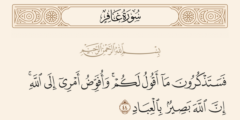 سُورَةُ غَافِرٍ
بِسْمِ اللَّهِ الرَّحْمَٰنِ الرَّحِيمِ
فَسَتَذْكُرُونَ مَا أَقُولُ لَكُمْ ۚ وَأُفَوِّضُ أَمْرِي إِلَى اللَّهِ ۚ
إِنَّ اللَّهَ بَصِيرٌ بِالْعِبَادِ